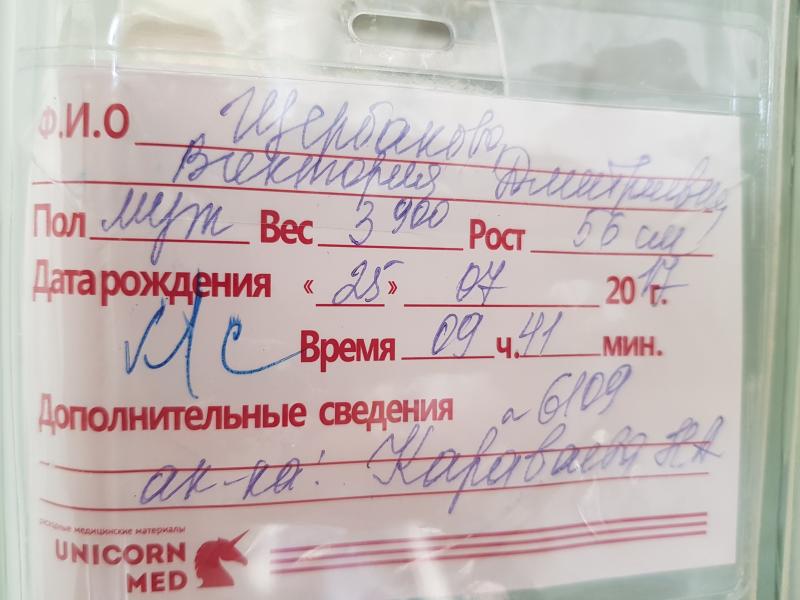 Ф.И.О Щербакова
Виктория Дмитриевна
Пол муж Вес 3 900 Рост 56 см
Дата рождения « 25 » 07 2017 г.
Время 09 ч. 41 мин.
Дополнительные сведения ~ 6109
ак-ка: Караваева НА
расходные медицинские материалы
UNICORN
MED